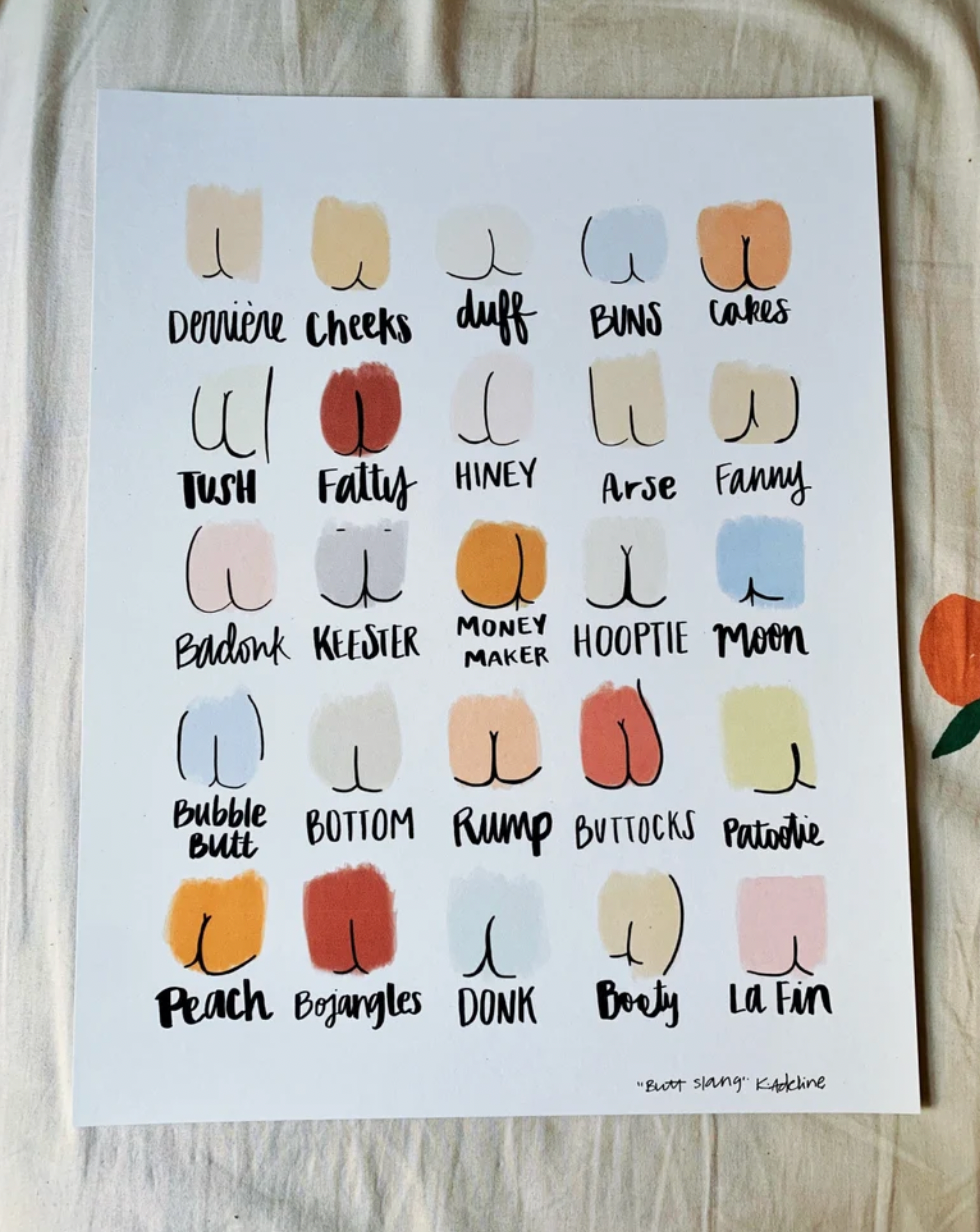 Derrière Cheeks duff BUNS Cakes
TUSH Fatty HINEY Arse Fanny
Badonk KEESTER MONEY MAKER HOOPTIE Moon
Bubble Butt BOTTOM Rump BUTTOCKS Patootie
Peach Bojangles DONK Booty La Fin
"Butt slang" K.Adeline